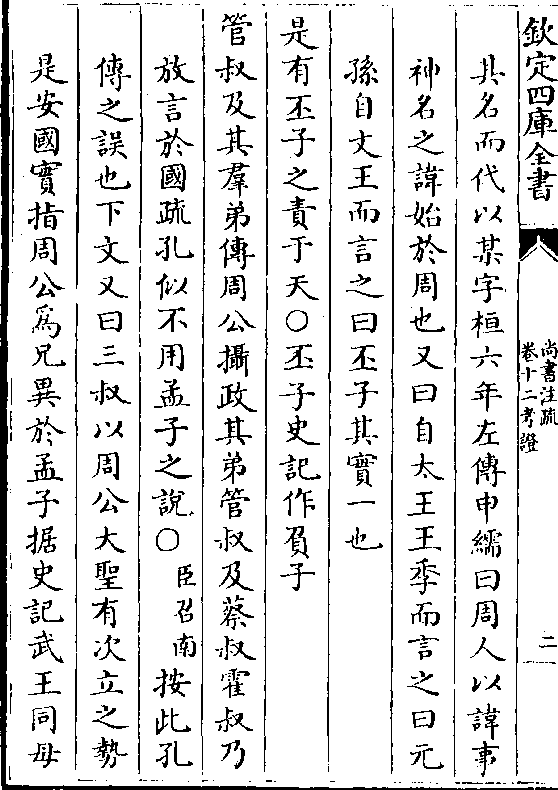 欽定四庫全書
尚書注疏
卷十二考證
二
其名而代以某字桓六年左傳申繻曰周人以諱事
神名之諱始於周也又曰自太王王季而言之曰元
孫自文王而言之曰丕子其實一也
是有丕子之責于天○丕子史記作負子
管叔及其羣弟傳周公攝政其弟管叔及蔡叔霍叔乃
放言於國疏孔似不用孟子之說○臣召南按此孔
傳之誤也下文又曰三叔以周公大聖有次立之勢
是安國實指周公爲兄異於孟子据史記武王同母